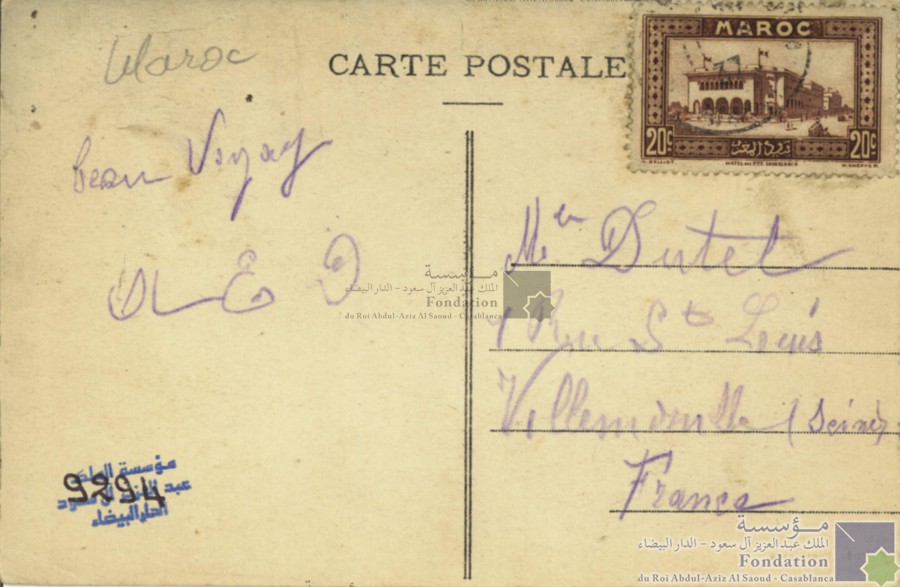 Maroc
CARTE POSTALE
MAROC
20c 20c
beau Voyag
Mer Dutel
Rue St Louis
(Seine)
France
مؤسسة
الملك عبد العزيز آل سعود - الدار البيضاء
Fondation
du Roi Abdul-Aziz Al Saoud - Casablanca
مؤسسة الملك
عبد العزيز آل سعود
الدار البيضاء
9294
مؤسسة
الملك عبد العزيز آل سعود - الدار البيضاء
Fondation
du Roi Abdul-Aziz Al Saoud - Casablanca